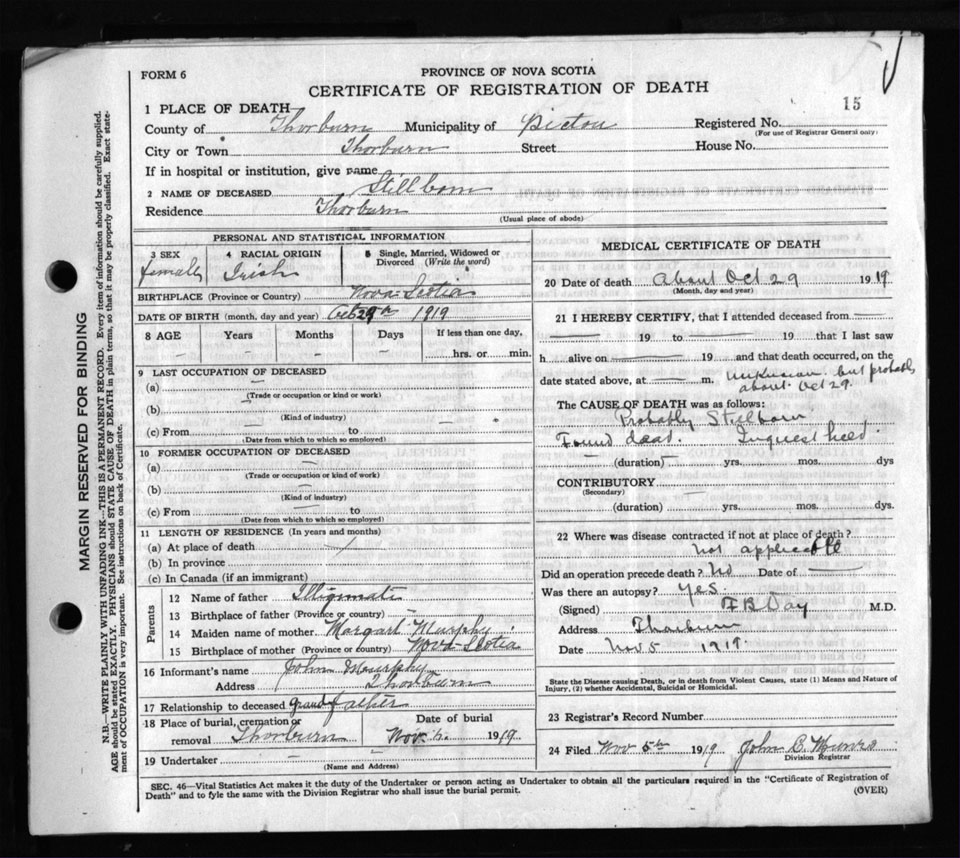 FORM 6
PROVINCE OF NOVA SCOTIA
CERTIFICATE OF REGISTRATION OF DEATH
15
1 PLACE OF DEATH
County of Thorburn Municipality of Pictou Registered No.
(For use of Registrar General only)
City or Town Thorburn Street House No.
If in hospital or institution, give name
2 NAME OF DECEASED Stillborn
Residence Thorburn
(Usual place of abode)
PERSONAL AND STATISTICAL INFORMATION
3 SEX 4 RACIAL ORIGIN 5 Single, Married, Widowed or Divorced (Write the word)
female Irish
BIRTHPLACE (Province or Country) Nova Scotia
DATE OF BIRTH (month, day and year) Oct 29th 1919
8 AGE Years Months Days If less than one day,
— — — — hrs. or min.
9 LAST OCCUPATION OF DECEASED
(a) —
(Trade or occupation or kind or work)
(b) —
(Kind of industry)
(c) From — to
(Date from which to which so employed)
10 FORMER OCCUPATION OF DECEASED
(a) —
(Trade or occupation or kind of work)
(b) —
(Kind of industry)
(c) From — to
(Date from which to which so employed)
11 LENGTH OF RESIDENCE (In years and months)
(a) At place of death
(b) In province
(c) In Canada (if an immigrant)
Parents
12 Name of father Illigmate
13 Birthplace of father (Province or country) —
14 Maiden name of mother Margart Murphy
15 Birthplace of mother (Province or country) Nova Scotia
16 Informant's name John Mourphy
Address Thorburn
17 Relationship to deceased grand father
18 Place of burial, cremation or removal Thorburn Date of burial Nov 1919
19 Undertaker —
(Name and Address)
MEDICAL CERTIFICATE OF DEATH
20 Date of death About Oct 29 1919
(Month, day and year)
21 I HEREBY CERTIFY, that I attended deceased from —
— 19 to — 19 that I last saw
h alive on — 19 and that death occurred, on the
date stated above, at — m. Unknown but probably
about Oct 29.
The CAUSE OF DEATH was as follows:
Probably Stilborn
Found dead. Inquest held.
— (duration) — yrs. mos. dys
CONTRIBUTORY
(Secondary)
(duration) yrs. mos. dys.
22 Where was disease contracted if not at place of death?
not applicable
Did an operation precede death? No Date of —
Was there an autopsy? Yes
(Signed) F B Day M.D.
Address Thorburn
Date Nov 5 1919
State the Disease causing Death, or in death from Violent Causes, state (1) Means and Nature of Injury, (2) whether Accidental, Suicidal or Homicidal.
23 Registrar's Record Number
24 Filed Nov 5th 1919 John C. Munro
Division Registrar
SEC. 46—Vital Statistics Act makes it the duty of the Undertaker or person acting as Undertaker to obtain all the particulars required in the "Certificate of Registration of
Death" and to fyle the same with the Division Registrar who shall issue the burial permit. (OVER)
MARGIN RESERVED FOR BINDING
N.B.—WRITE PLAINLY WITH UNFADING INK—THIS IS A PERMANENT RECORD. Every item of information should be carefully supplied.
AGE should be stated EXACTLY. PHYSICIANS should STATE CAUSE OF DEATH in plain terms, so that it may be properly classified. Exact statement of OCCUPATION is very important. See instructions on back of Certificate.